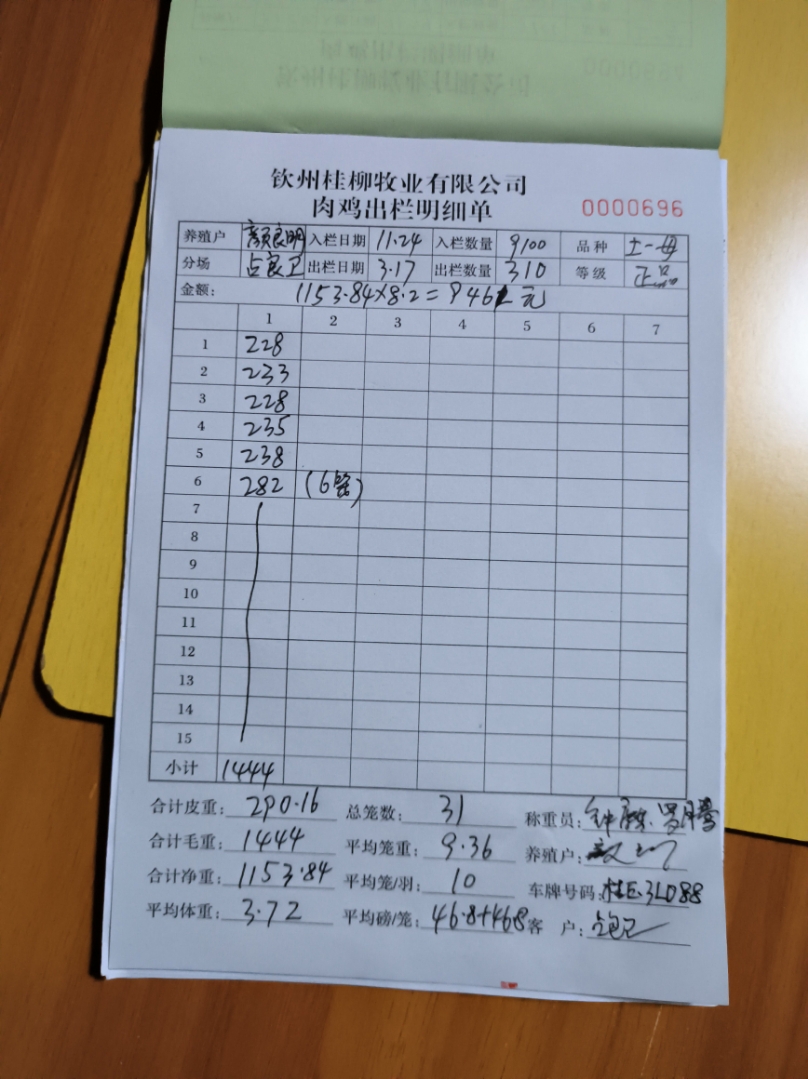 钦州桂柳牧业有限公司
肉鸡出栏明细单 0000696
养殖户 颜良明 入栏日期 11.24 入栏数量 9100 品种 土一母
分场 占良卫 出栏日期 3.17 出栏数量 310 等级 正品
金额: 1153.84×8.2=9461元
1 2 3 4 5 6 7
1 228
2 233
3 228
4 235
5 238
6 282 (6笼)
7
8
9
10
11
12
13
14
15
小计 1444
合计皮重: 290.16 总笼数: 31 称重员:
合计毛重: 1444 平均笼重: 9.36 养殖户:
合计净重: 1153.84 平均笼/羽: 10 车牌号码: 桂E3L088
平均体重: 3.72 平均磅/笼: 46.8+468 客 户: